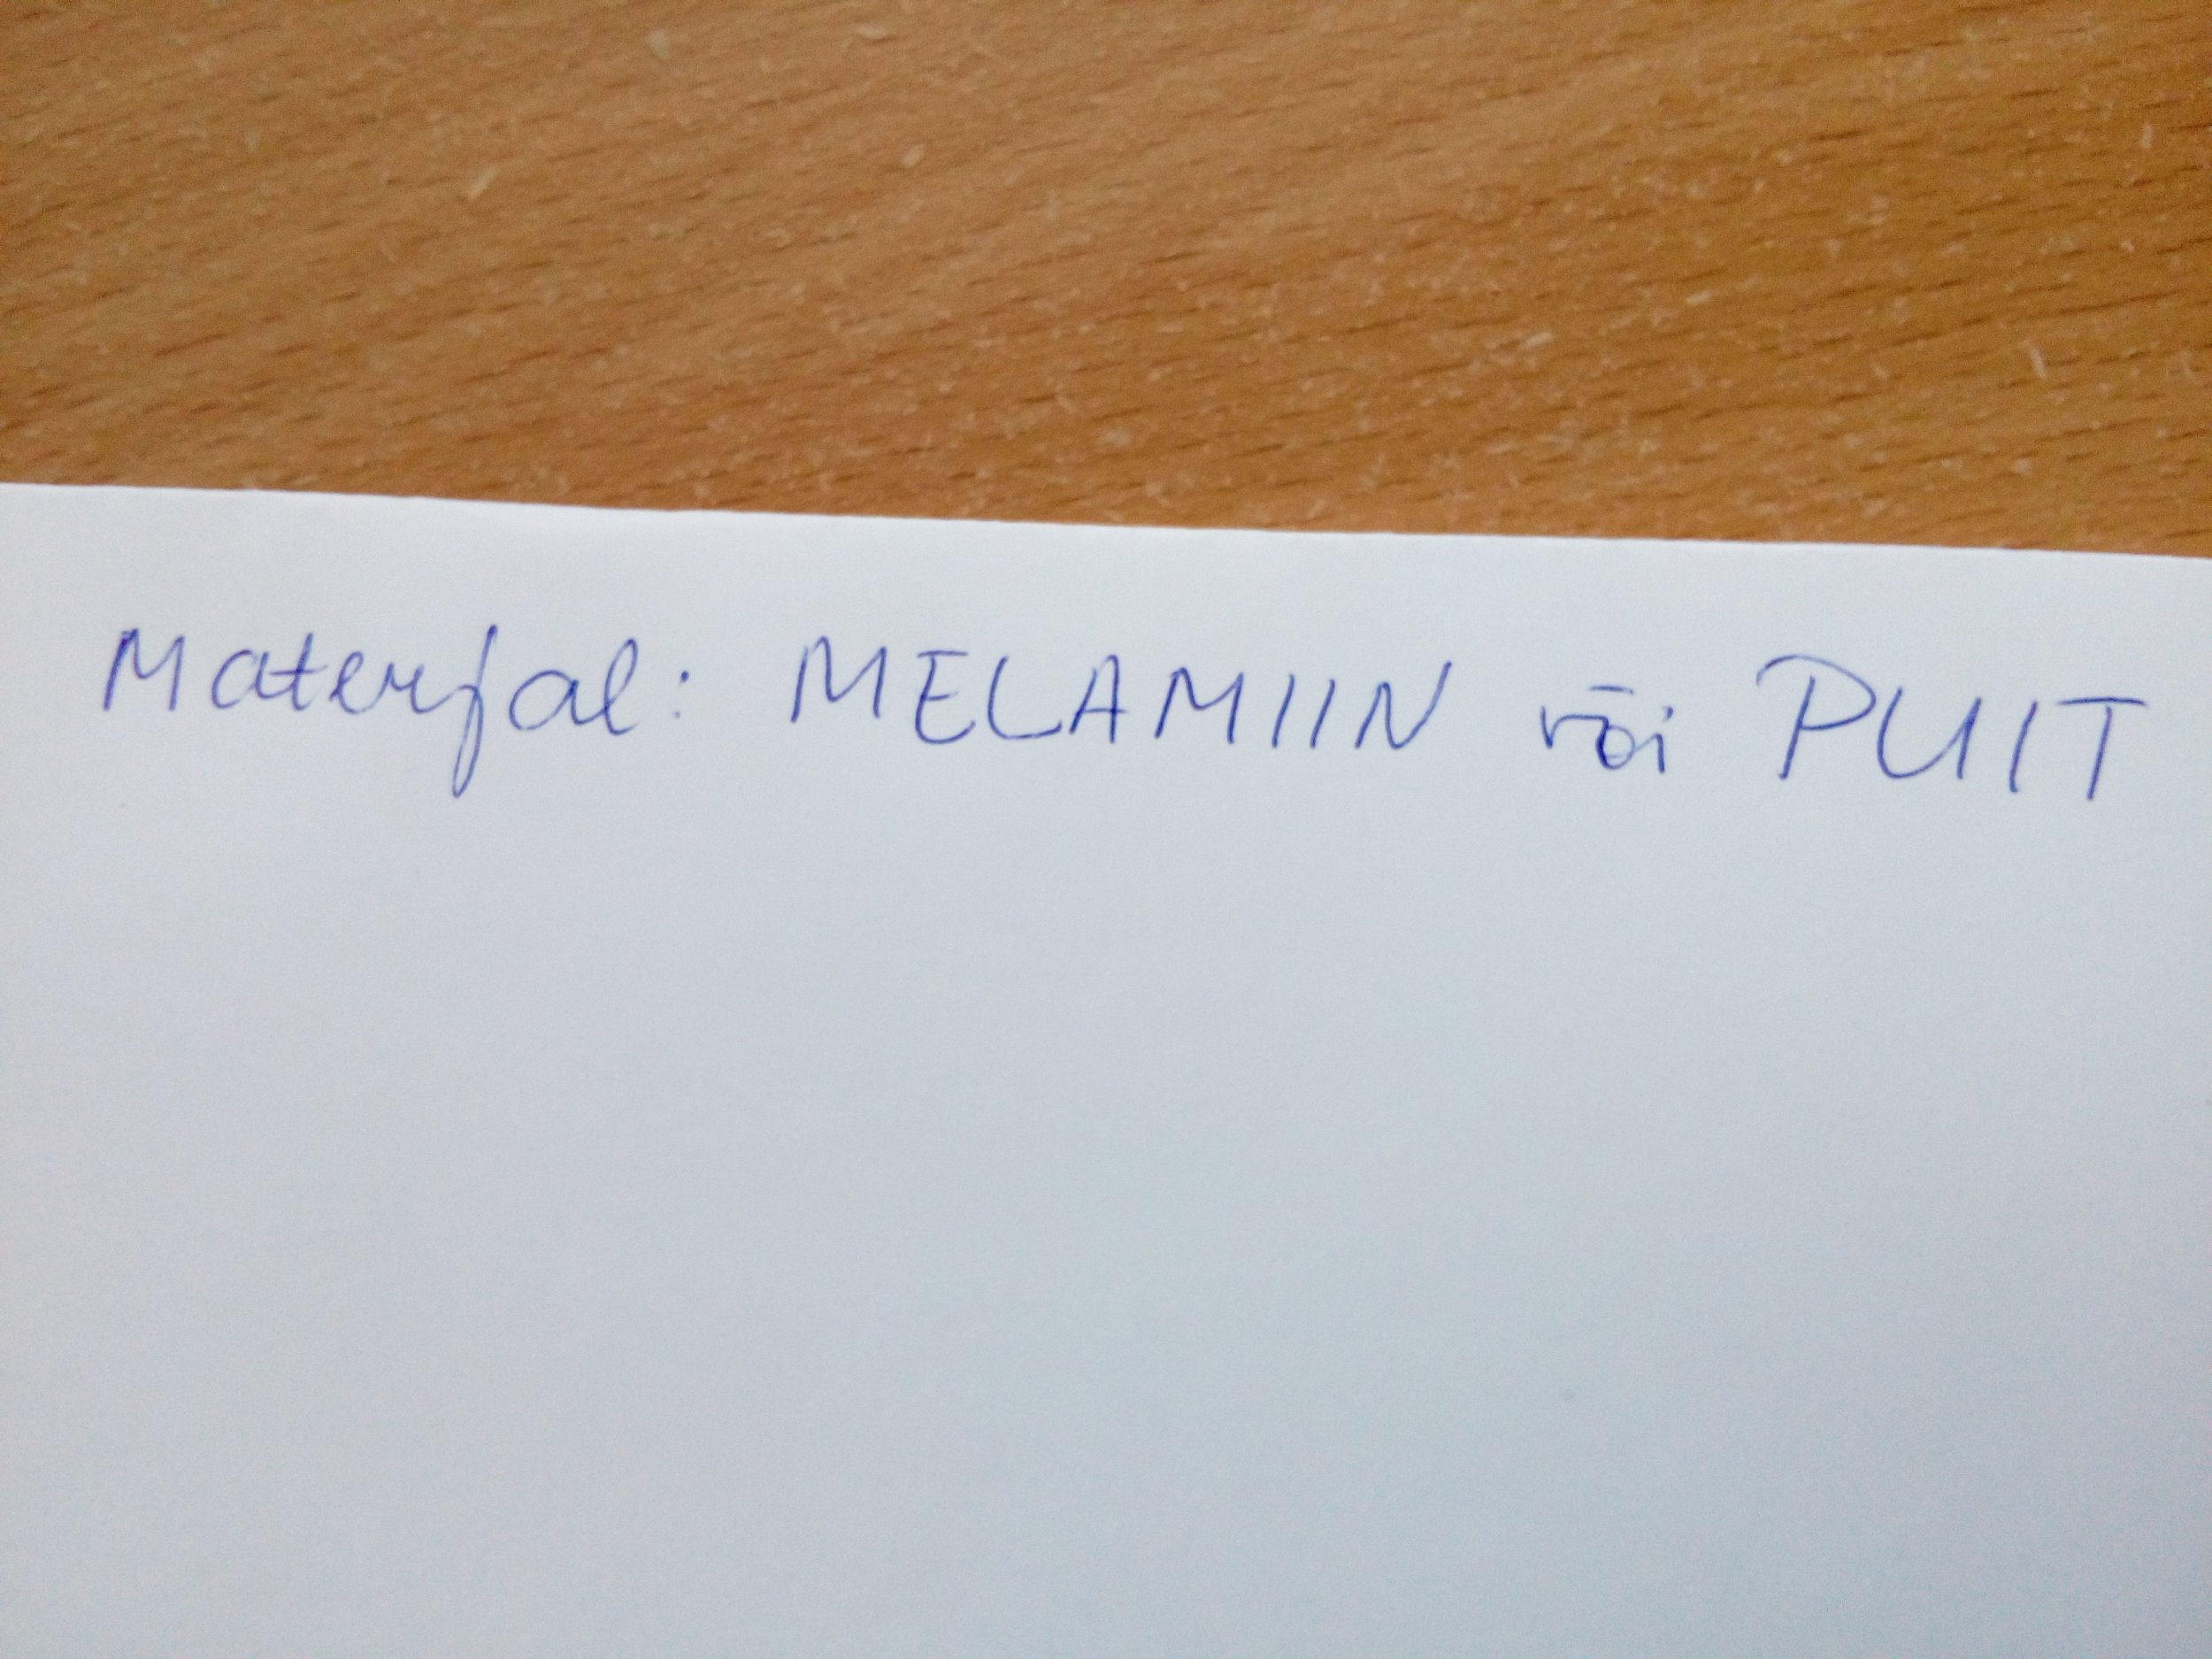 Materjal: MELAMIIN või PUIT